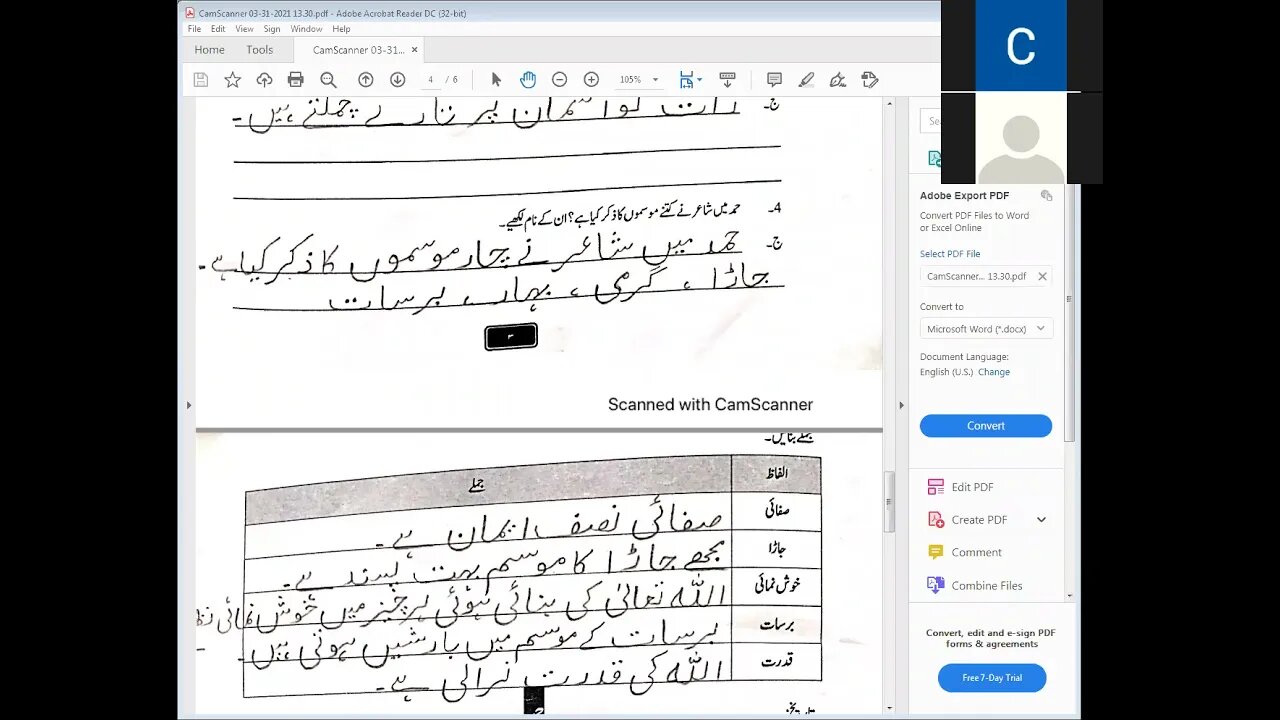 CamScanner 03-31-2021 13.30.pdf - Adobe Acrobat Reader DC (32-bit)
File Edit View Sign Window Help
Home Tools CamScanner 03-31... ×
4 / 6 105%
C
ج۔ رات کو آسمان پر تارے چمکتے ہیں۔
4۔ حمد میں شاعر نے کتنے موسموں کا ذکر کیا ہے؟ ان کے نام لکھیے۔
ج۔ حمد میں شاعر نے چار موسموں کا ذکر کیا ہے۔
جاڑا ، گرمی ، بہار، برسات
۳
Scanned with CamScanner
جملے بنائیں۔
الفاظ جملے
صفائی صفائی نصف ایمان ہے۔
جاڑا مجھے جاڑا کا موسم بہت پسند ہے۔
خوش نمائی اللہ تعالیٰ کی بنائی ہوئی ہر چیز میں خوش نمائی
برسات برسات کے موسم میں بارشیں ہوتی ہیں۔
قدرت اللہ کی قدرت نرالی ہے۔
Adobe Export PDF
Convert PDF Files to Word
or Excel Online
Select PDF File
CamScanner... 13.30.pdf ×
Convert to
Microsoft Word (*.docx)
Document Language:
English (U.S.) Change
Convert
Edit PDF
Create PDF
Comment
Combine Files
Convert, edit and e-sign PDF
forms & agreements
Free 7-Day Trial